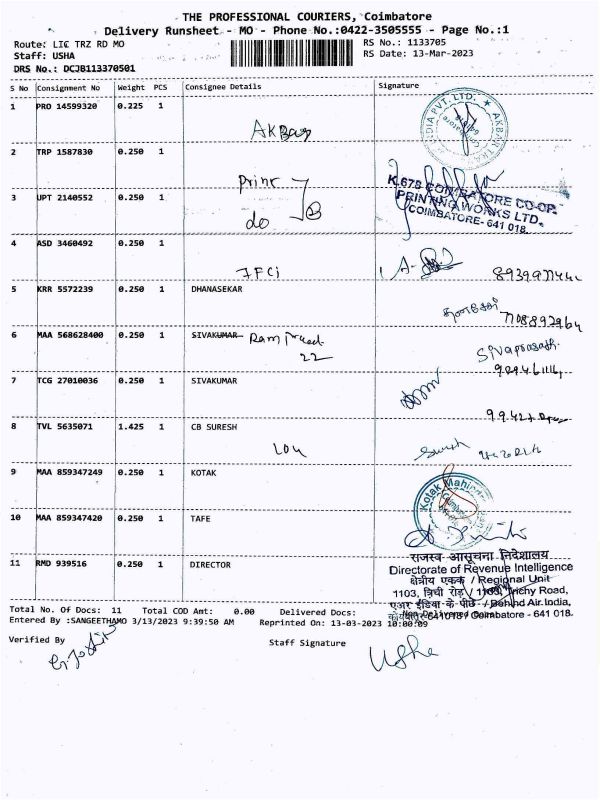 THE PROFESSIONAL COURIERS, Coimbatore
Delivery Runsheet - MO - Phone No.:0422-3505555 - Page No.:1
Route: LIC TRZ RD MO
RS No.: 1133705
Staff: USHA
RS Date: 13-Mar-2023
DRS No.: DCJB113370501
S No Consignment No Weight PCS Consignee Details Signature
1 PRO 14599320 0.225 1
AKBar
2 TRP 1587830 0.250 1
print
3 UPT 2140552 0.250 1
do
K.678 COIMBATORE CO-OP.
PRINTING WORKS LTD.,
COIMBATORE- 641 018.
4 ASD 3460492 0.250 1
IFCi
5 KRR 5572239 0.250 1 DHANASEKAR
7708892964
6 MAA 568628400 0.250 1 SIVAKUMAR
22
Sivaprasath.
7 TCG 27010036 0.250 1 SIVAKUMAR
8 TVL 5635071 1.425 1 CB SURESH
Suresh
9 MAA 859347249 0.250 1 KOTAK
Kotak Mahindra
10 MAA 859347420 0.250 1 TAFE
11 RMD 939516 0.250 1 DIRECTOR
राजस्व आसूचना निदेशालय
Directorate of Revenue Intelligence
क्षेत्रीय एकक / Regional Unit
1103, त्रिची रोड / 1103, Trichy Road,
एअर इंडिया के पीछे / Behind Air India,
641018 / Coimbatore - 641 018.
Total No. Of Docs: 11 Total COD Amt: 0.00 Delivered Docs:
Entered By :SANGEETHAMO 3/13/2023 9:39:50 AM Reprinted On: 13-03-2023 10:00:09
Verified By Staff Signature
Usha